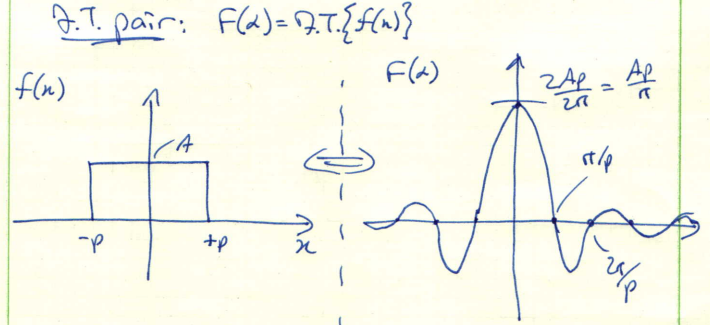 F.T. pair: F(α) = F.T.{f(x)}
f(x)
A
-p +p x
F(α)
2Ap/2π = Ap/π
π/p
2π/p